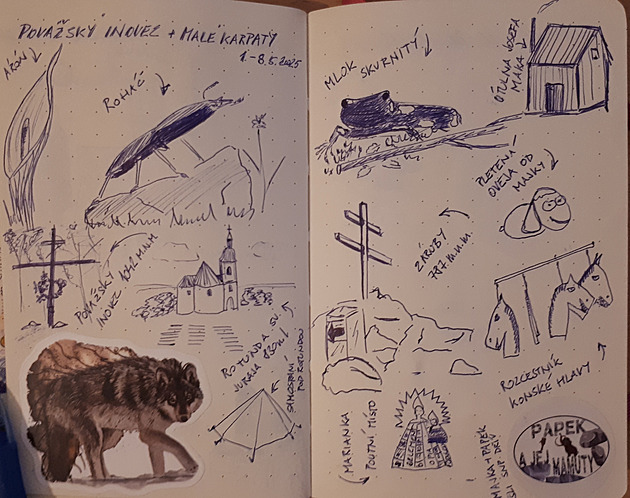 POVAŽSKÝ INOVEC + MALÉ KARPATY
1.-8.5.2025
ÁRON
ROHÁČ
POVAŽSKÝ
INOVEC 1042 M.N.M
ROTUNDA SV.
JURAJA
POD ROTUNDOU
MLOK SKVRNITÝ
ÚTULŇA JOSEFA
MAKA
PLETENÁ
OVEJA OD
MAJKY
ZÁRUBY
767 m.n.m.
ROZCESTNÍK
KOŇSKÉ HLAVY
MARIANKA
POUTNÍ MÍSTO
PAPEK
A JEJ MAMUTY